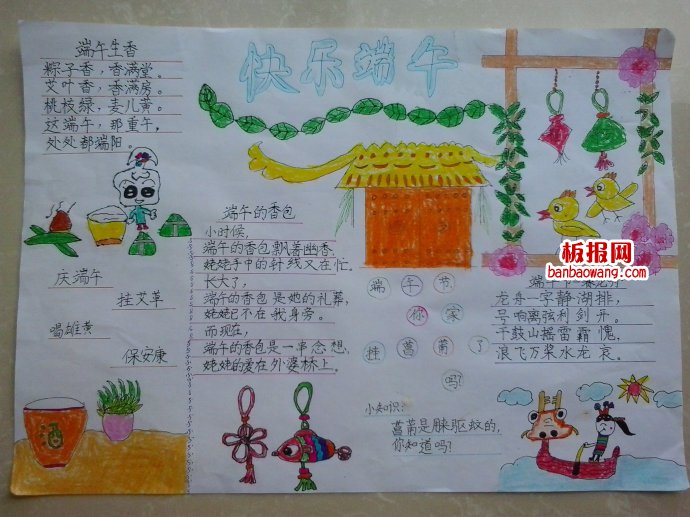 快乐端午
端午生香
粽子香，香满堂。
艾叶香，香满房。
桃枝绿，麦儿黄。
这端午，那重午，
处处都端阳。
庆端午
挂艾草
喝雄黄
保安康
酒
端午的香包
小时候，
端午的香包飘着幽香，
姥姥手中的针线又在忙。
长大了，
端午的香包是她的礼幕，
姥姥已不在我身旁。
而现在，
端午的香包是一串念想，
姥姥的爱在外婆桥上。
端午节
你家
挂菖蒲了
吗?
小知识：
菖蒲是用来驱蚊的，
你知道吗?
板报网
banbaowang.com
龙舟一字静湖排，
号响离弦利剑开。
千鼓山摇雷霸愧，
浪飞万桨水龙哀。